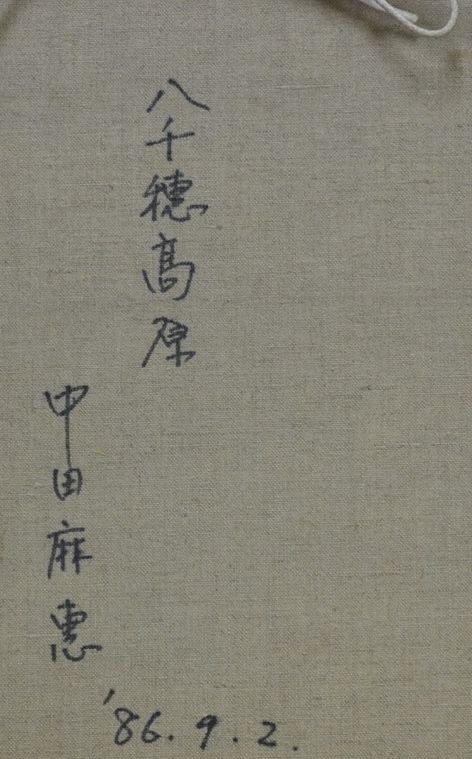 八千穂高原
中田麻恵
'86.9.2.